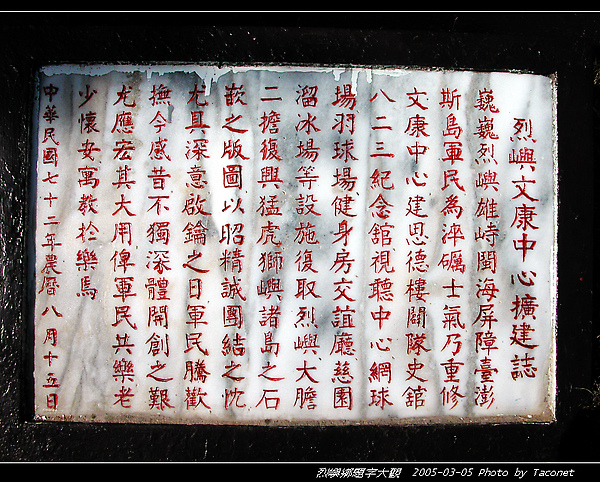 烈嶼文康中心擴建誌
巍巍烈嶼雄峙閩海屏障臺澎
斯島軍民為淬礪士氣乃重修
文康中心建思德樓闢隊史舘
八二三紀念舘視聽中心網球
場羽球場健身房交誼廳慈園
溜冰場等設施復取烈嶼大膽
二擔復興猛虎獅嶼諸島之石
嵌之版圖以昭精誠團結之忱
尤具深意啟鑰之日軍民騰歡
撫今感昔不獨深體開創之艱
尤應宏其大用俾軍民共樂老
少懷安寓教於樂焉
中華民國七十二年農曆八月十五日
烈嶼鄉題字大觀 2005-03-05 Photo by Taconet